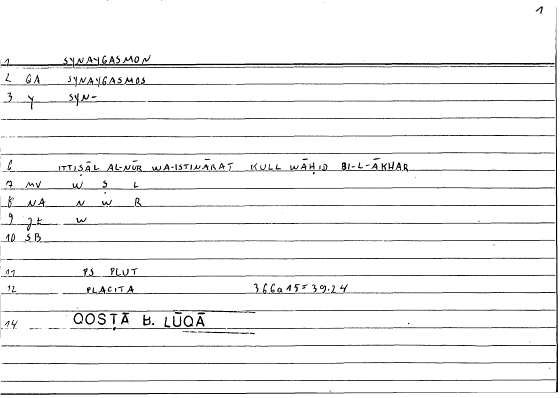 1
1 SYNAYGASMON
2 GA SYNAYGASMOS
3 Y SYN-
6 ITTIṢĀL AL-NŪR WA-ISTINĀRAT KULL WĀḤID BI-L-ĀKHAR
7 MV W Ṣ L
8 NA N W R
9 gk W
10 SB
11 PS PLUT
12 PLACITA 366a15=39.24
14 QOSṬĀ B. LŪQĀ